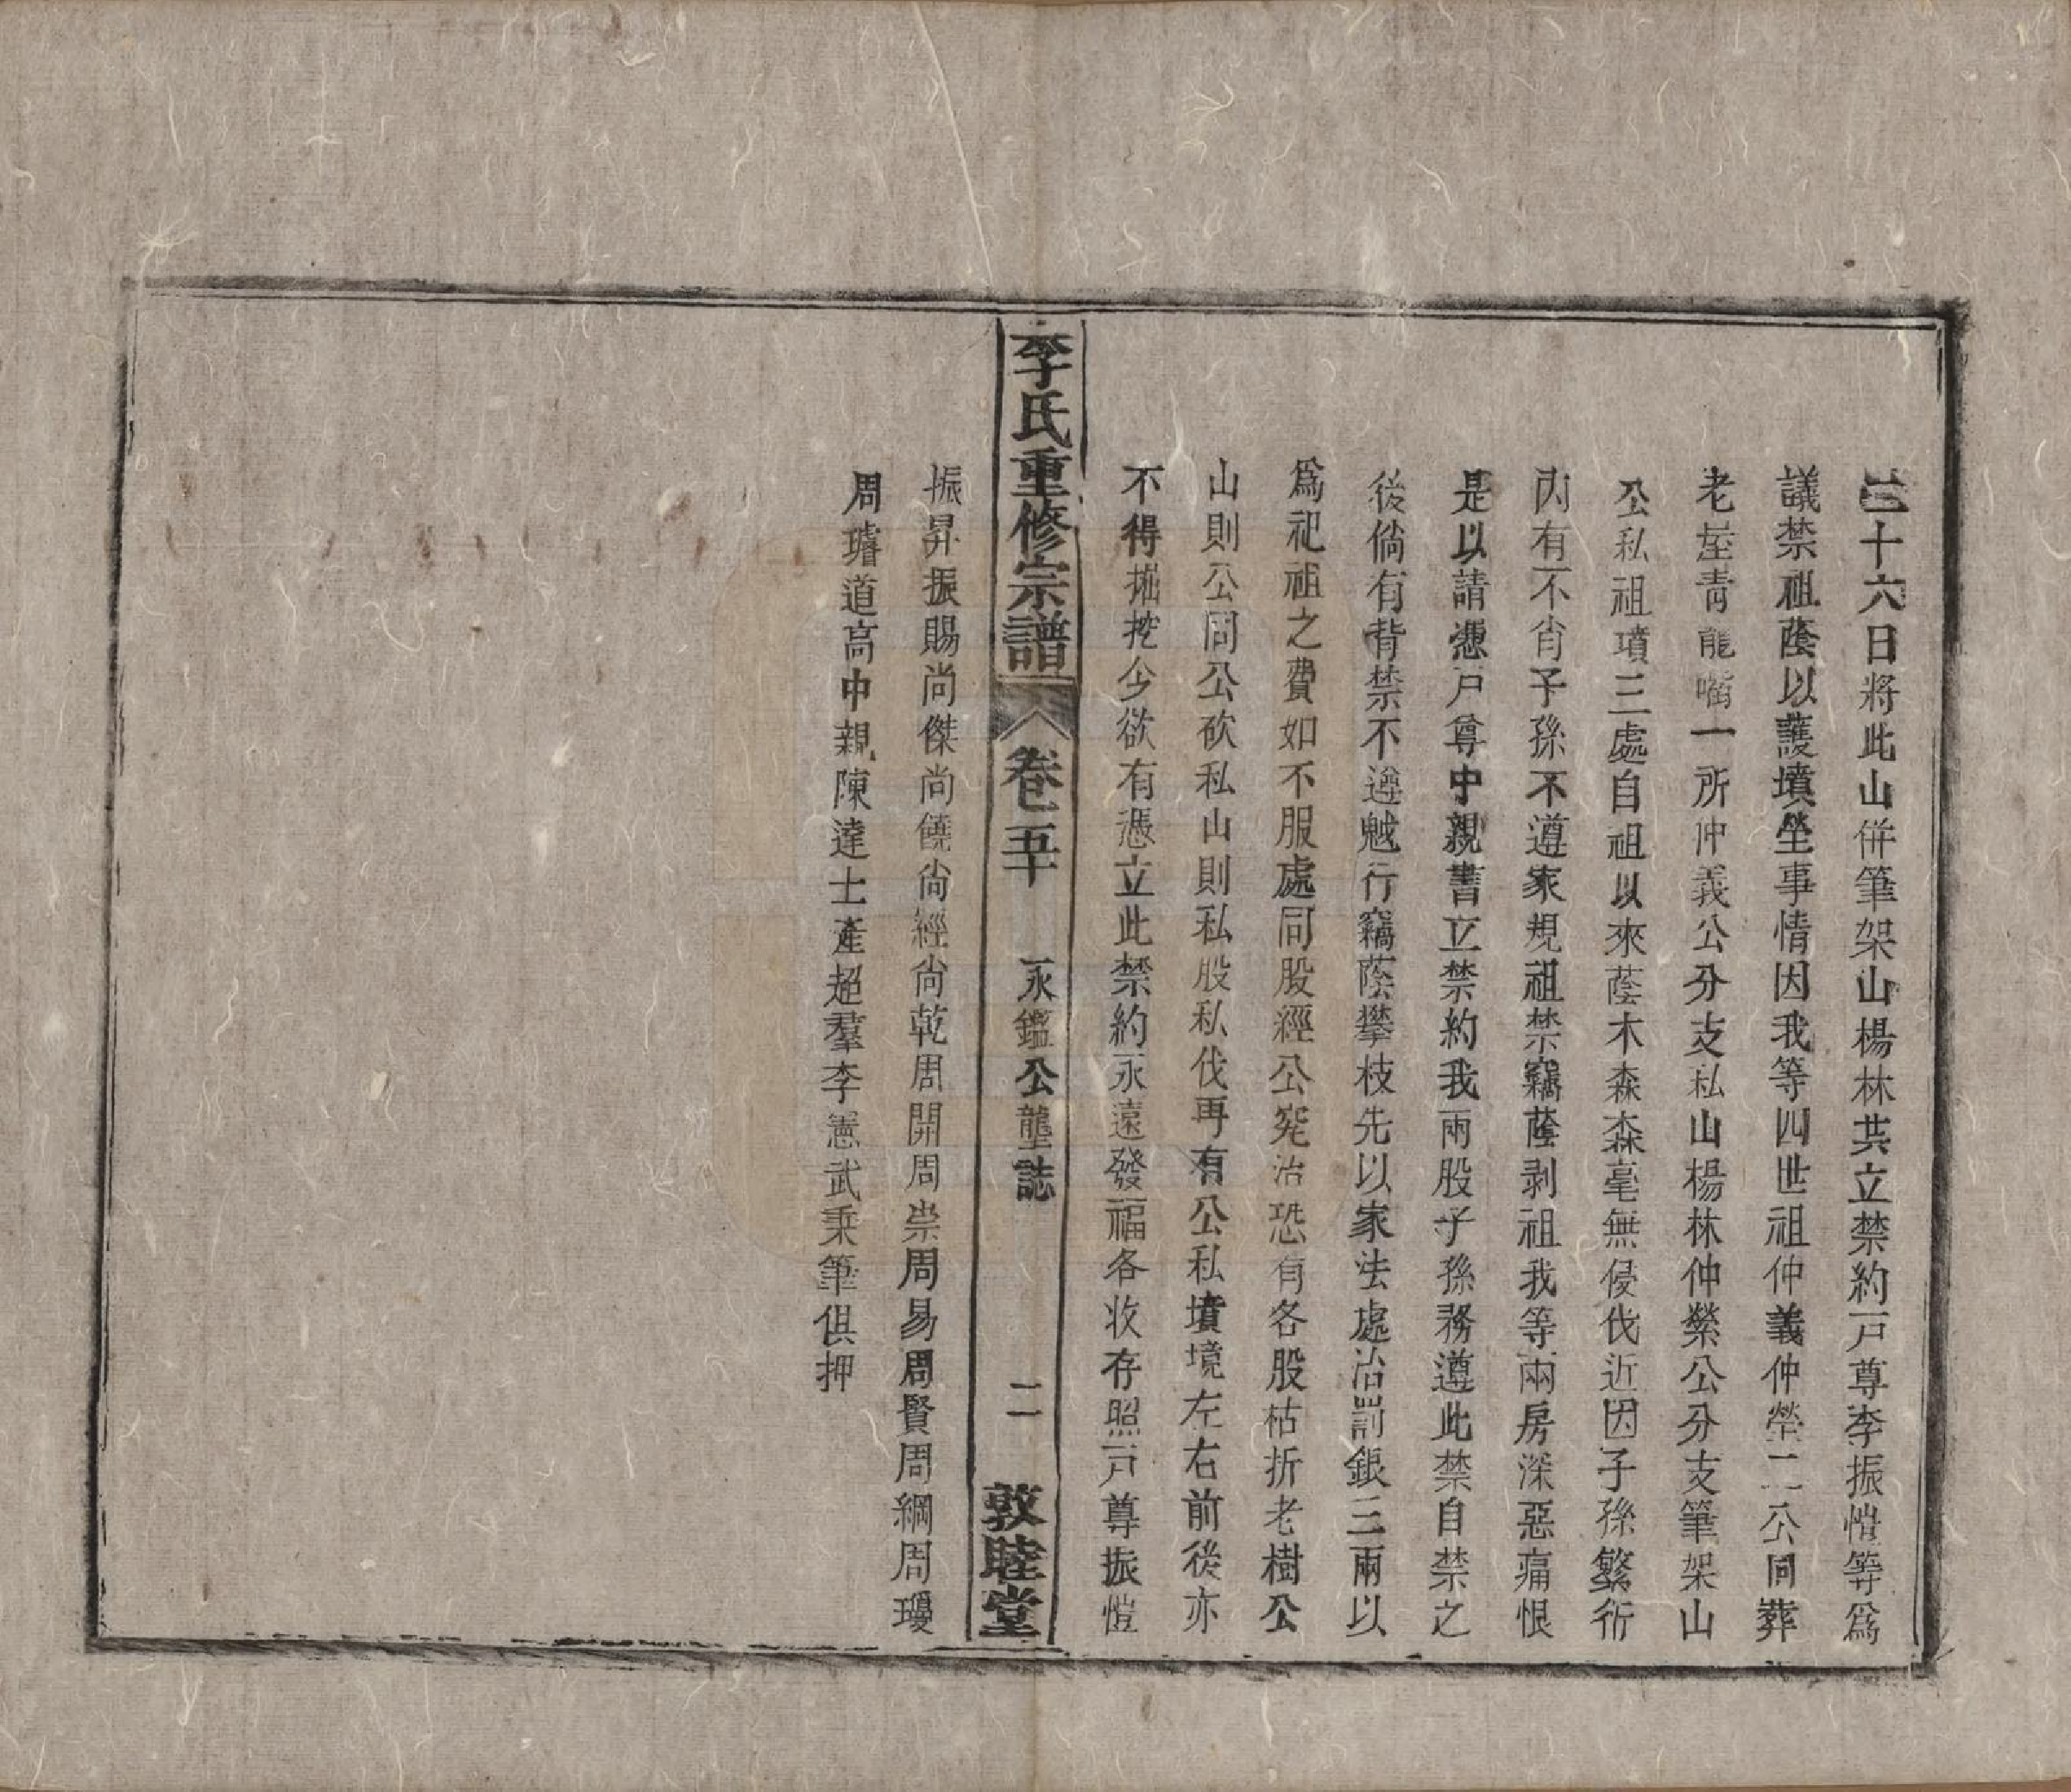 二十六日將此山併筆架山楊林共立禁約戸尊李振愷等爲
議禁祖蔭以護墳塋事情因我等四世祖仲義仲榮二公同葬
老屋靑龍嘴一所仲義公分支私山楊林仲榮公分支筆架山
公私祖墳三處自祖以來蔭木森森毫無侵伐近因子孫繁衍
內有不肖子孫不遵家規祖禁竊蔭剥祖我等兩房深惡痛恨
是以請憑戸尊中親書立禁約我兩股子孫務遵此禁自禁之
後倘有背禁不遵魆行竊蔭攀枝先以家法處治罰銀三兩以
爲祀祖之費如不服處同股經公究治恐有各股枯折老樹公
山則公同公砍私山則私股私伐再有公私墳境左右前後亦
不得掘挖今欲有憑立此禁約永遠發福各收存照戸尊振愷
李氏重修宗譜 卷五十 永鑑公壟誌 二 敦睦堂
振昇振賜尚傑尚饒尚經尚乾周開周崇周易周賢周綱周瓊
周璿道高中親陳達士產超羣李憲武秉筆俱押